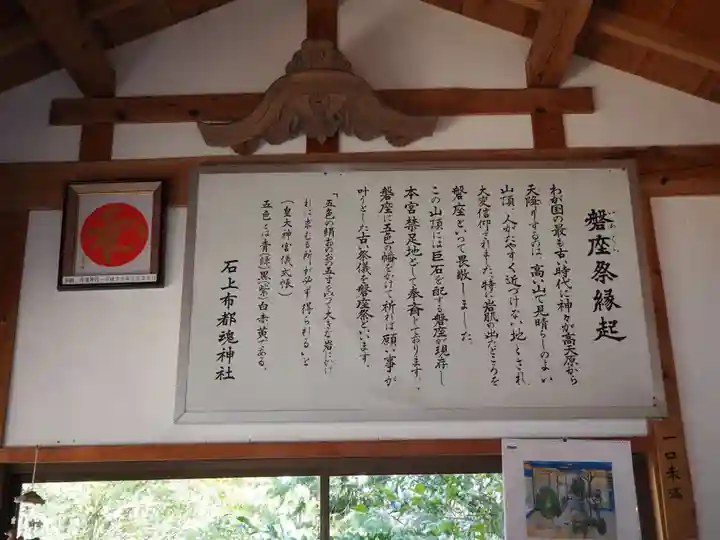 磐座祭縁起
いわくら
わが国の最も古い時代に神々が高天原から
天降りするのは、高い山で見晴らしのよい
山頂、人がたやすく近づけない地とされ
大変信仰されました、特に岩肌の出たところを
磐座といって畏敬しました。
この山頂には巨石を配する磐座が現存し
本宮禁足地として奉斎しております。
磐座に五色の幡をかけて祈れば願い事が
叶うとした古い祭儀を磐座祭といいます。
「五色の絹おのおの五寸をもって大きな岩にかけ
れば求むる所が必ず得られる」と
(皇大神宮儀式帳)
五色とは青(緑)黒(紫)白赤黄である。
石上布都魂神社
一口未満